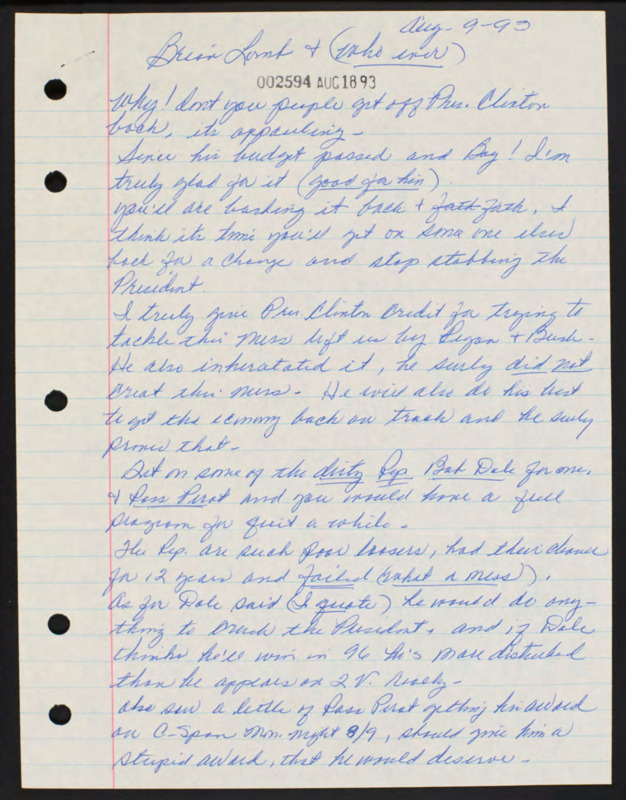 Aug- 9-93
Brian Lamb + (who ever)
002594 AUG1893
Why! dont you people get off Pres. Clinton
back, its appauling-
Since his budget passed and Boy! I'm
truly glad for it (good for him).
you'll are bashing it back + foth foth, I
think its time you'll get on some one elses
back for a change and stop stabbing the
President.
I truly give Pres Clinton credit for trying to
tackle this mess left us by Regan + Bush-
He also inheratated it, he surly did not
creat this mess- He will also do his best
to get the ecinomy back on track and he surly
proves that-
Get on some of the dirty Rep Bob Dole for one,
+ Ross Perot and you would have a full
program for quit a while-
The Rep. are such poor loosers, had their chance
for 12 years and failed (what a mess).
As for Dole said (I quote) he would do any-
thing to the President, and if Dole
thinks he'll win in 96 he's more disturbed
than he appears on T.V. really-
also saw a little of Ross Perot getting his award
on C-Span Mon. night 8/9, should give him a
stupid award, that he would deserve-